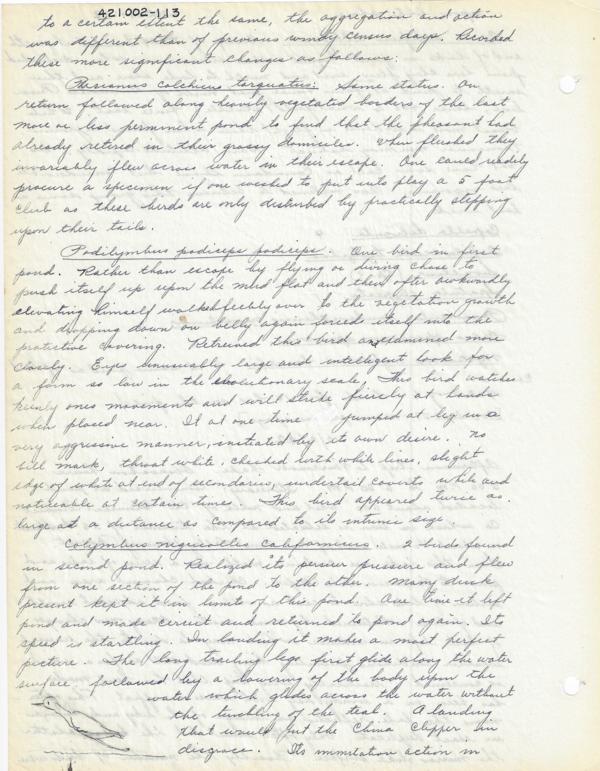 421002-113
to a certain extent the same, the aggregation and action
was different than of previous windy census days. Recorded
these more significant changes as follows:
Phasianus colchicus torquatus: Same status. On
return followed along heavily vegetated borders of the last
more or less permiment pond to find that the pheasant had
already retired in their grassy domiciles. When flushed they
invariably flew across water in their escape. One could readily
procure a specimen if one wished to put into play a 5 foot
club as these birds are only disturbed by practically stepping
upon their tails.
Podilymbus podiceps podiceps. One bird in first
pond. Rather than escape by flying or diving chose to
push itself up upon the mud flat and then after awkwardly
elevating himself walked feebly over to the vegetation growth
and dropping down on belly again forced itself into the
protective covering. Retrieved this bird & examined more
closely. Eyes unusually large and intelligent look for
a form so low in the evolutionary scale. This bird watches
keenly ones movements and will strike fiercly at hands
when placed near. It at one time jumped at leg in a
very aggressive manner, initiated by its own desire. No
bill mark, throat white, cheeked with white lines, slight
edge of white at end of secondaries, undertail coverts white and
noticeable at certain times. This bird appeared twice as
large at a distance as compared to its intrinsic size.
Colymbus nigricollis californicus. 2 birds found
in second pond. Realized its pursuer pressure and flew
from one section of the pond to the other. Many duck
present kept it in limits of this pond. One time it left
pond and made circuit and returned to pond again. Its
speed is startling. In landing it makes a most perfect
picture. The long trailing legs first glide along the water
surface followed by a lowering of the body upon the
water which glides across the water without
the tumbling of the teal. A landing
that would put the China Clipper in
disgrace. Its immitation action in